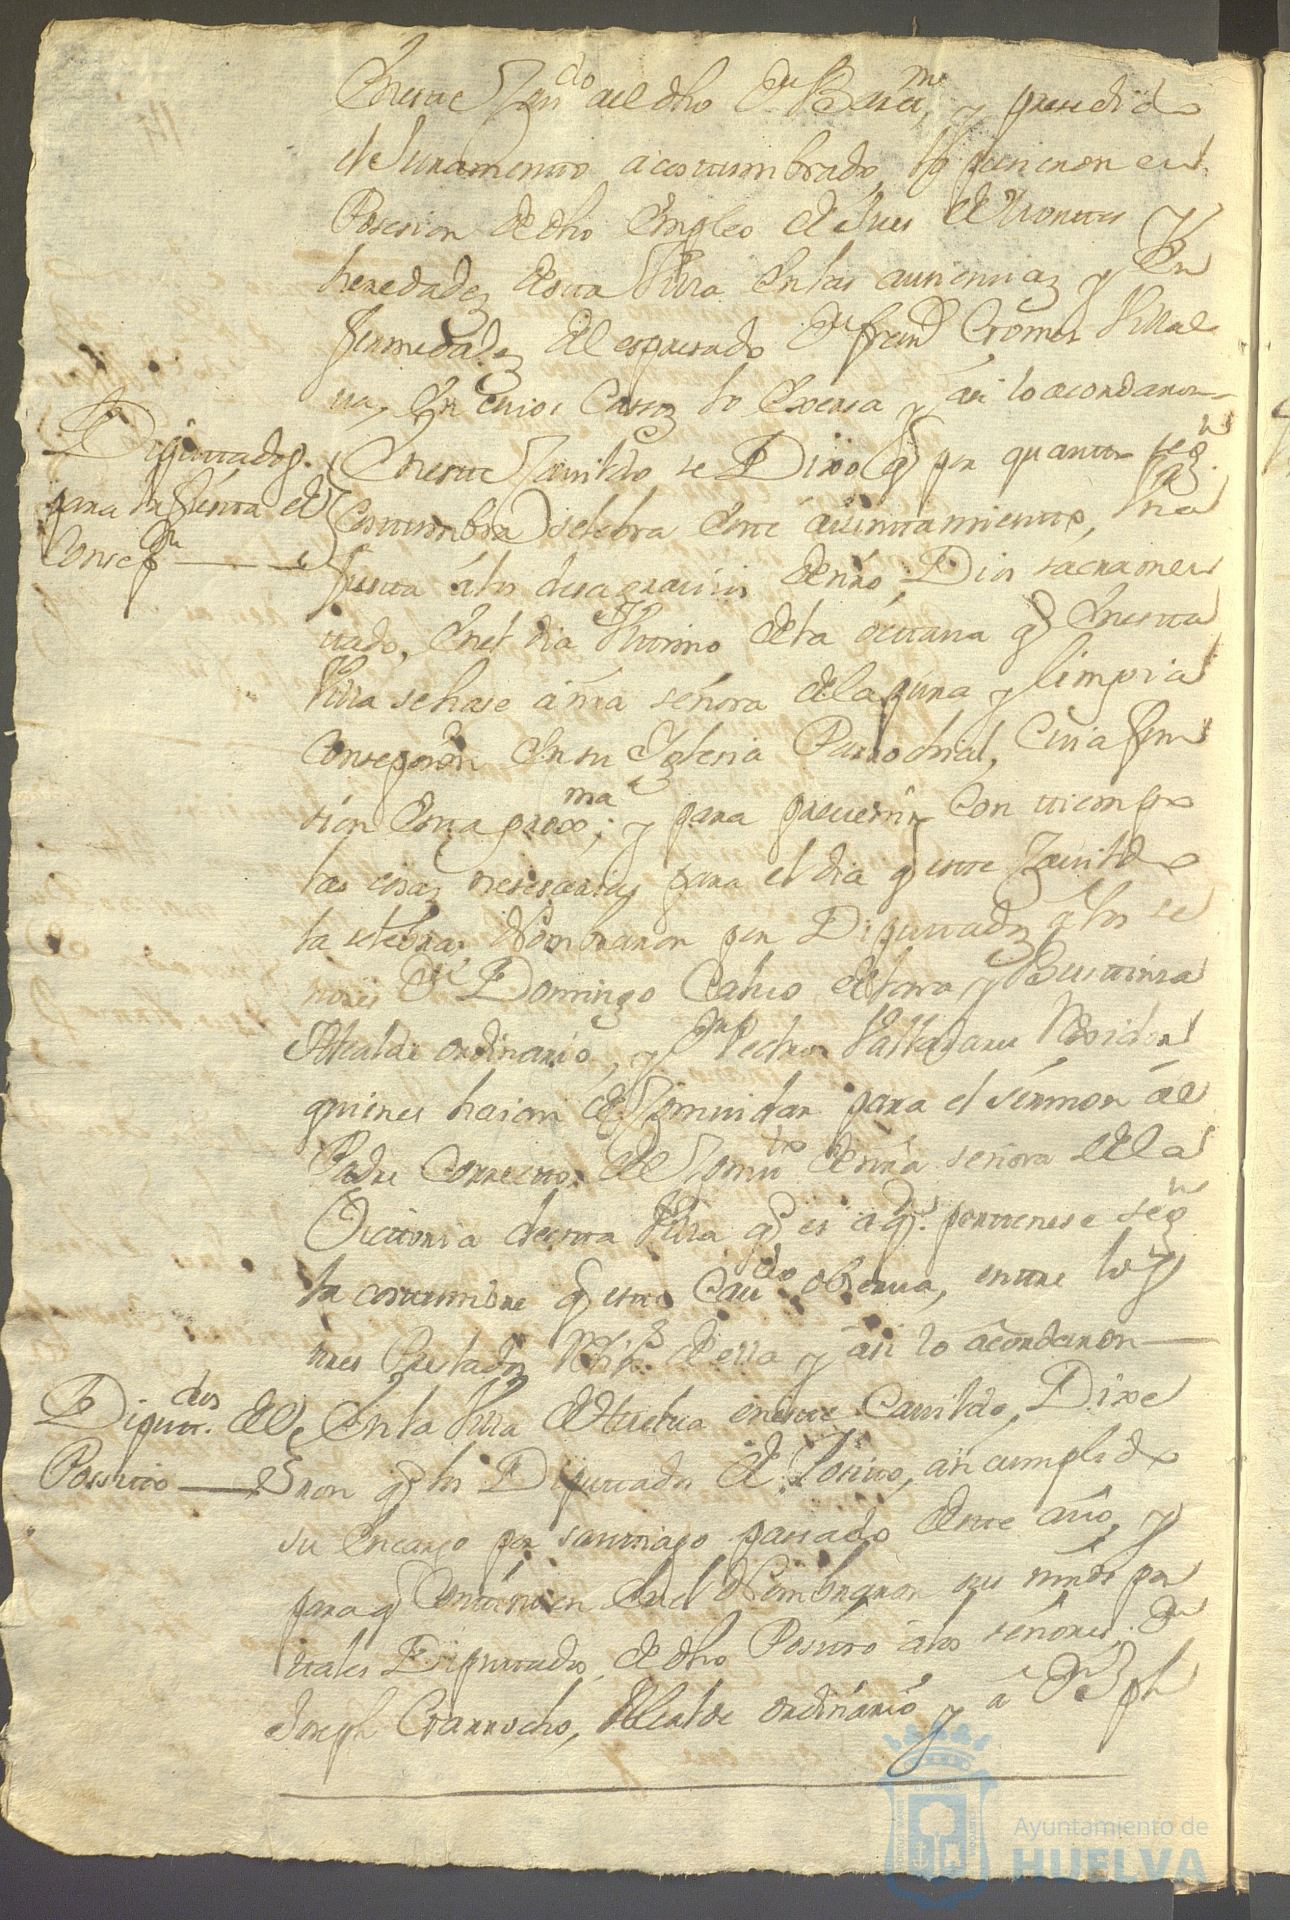 En este Cav.do al dho Dn Bar.me, y presedido
el Juramento acostumbrado, lo pucieron en
Posesion de dho Empleo de Jues de Montes y
heredades desta Villa en las aucencias y En
fermedades del espresado Dn fran.co Gomes Villal
va, en cuios Casos lo exersa y asi lo acordaron
Diputados
para la fiesta de
Consep.on
En este Cavildo se Dixo q por quanto seg.n
Costumbre selebra este aiuntamiento, una
fiesta a los desagravios de nro Dios sacramen
tado, en el dia Ultimo de la octava q en esta
Villa se hase a nra señora de la pura y limpia
Consepcion en su Yglesia Parrochial, Cuia fun
sion esta prox.ma; y para prevenir con tiempo
las cosas nesesarias para el dia q este Cavildo
la selebra, Nombraron por Diputados a los se
nores Dn Domingo Calvo de la torre y Bustintta
Alcalde ordinario, y Dn Pedro Valladares Rexidor
quienes haian de Comvidar para el sermon al
Padre Corrector de el Comv.to de nra señora de la
Victoria de esta Villa q es a q.n pertenese seg.n
la costumbre q este Cav.do observa, entre los
tres Prelados de ella y asi lo acordaron
Diput.dos del
Possito
En la Villa de Huelva en este Cavildo, Dixe
ron q los Diputados de el Posito, an cumplido
su encargo por santiago pasado de este año, y
para q continuen en el Nombraron sus mrds por
tales Diputados de dho Possito a los señores Dn
Joseph Garrocho, Alcalde ordinario y a Dn Jph
Ayuntamiento de
HUELVA